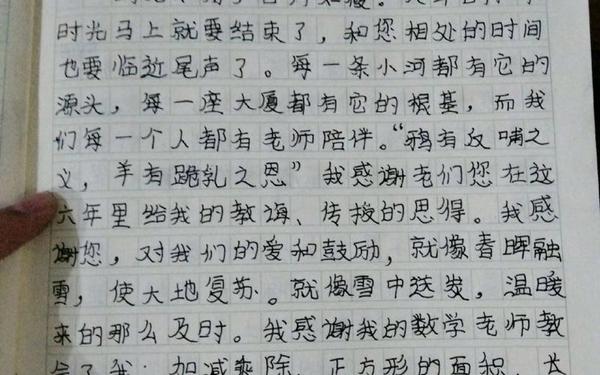 时光马上就要结束了，和您相处的时间
也要临近尾声了。每一条小河都有它的
源头，每一座大厦都有它的根基，而我
们每一个人都有老师陪伴。“鸦有反哺之
义，羊有跪乳之恩”我感谢老们您在这
六年里给我的教诲、传授的思得。我感
谢您，对我们的爱和鼓励，就像春晖融
雪，使大地复苏。就像雪中送炭，温暖
来的那么及时。我感谢我的数学老师教
给了我：加减乘除、正方形的面积、长